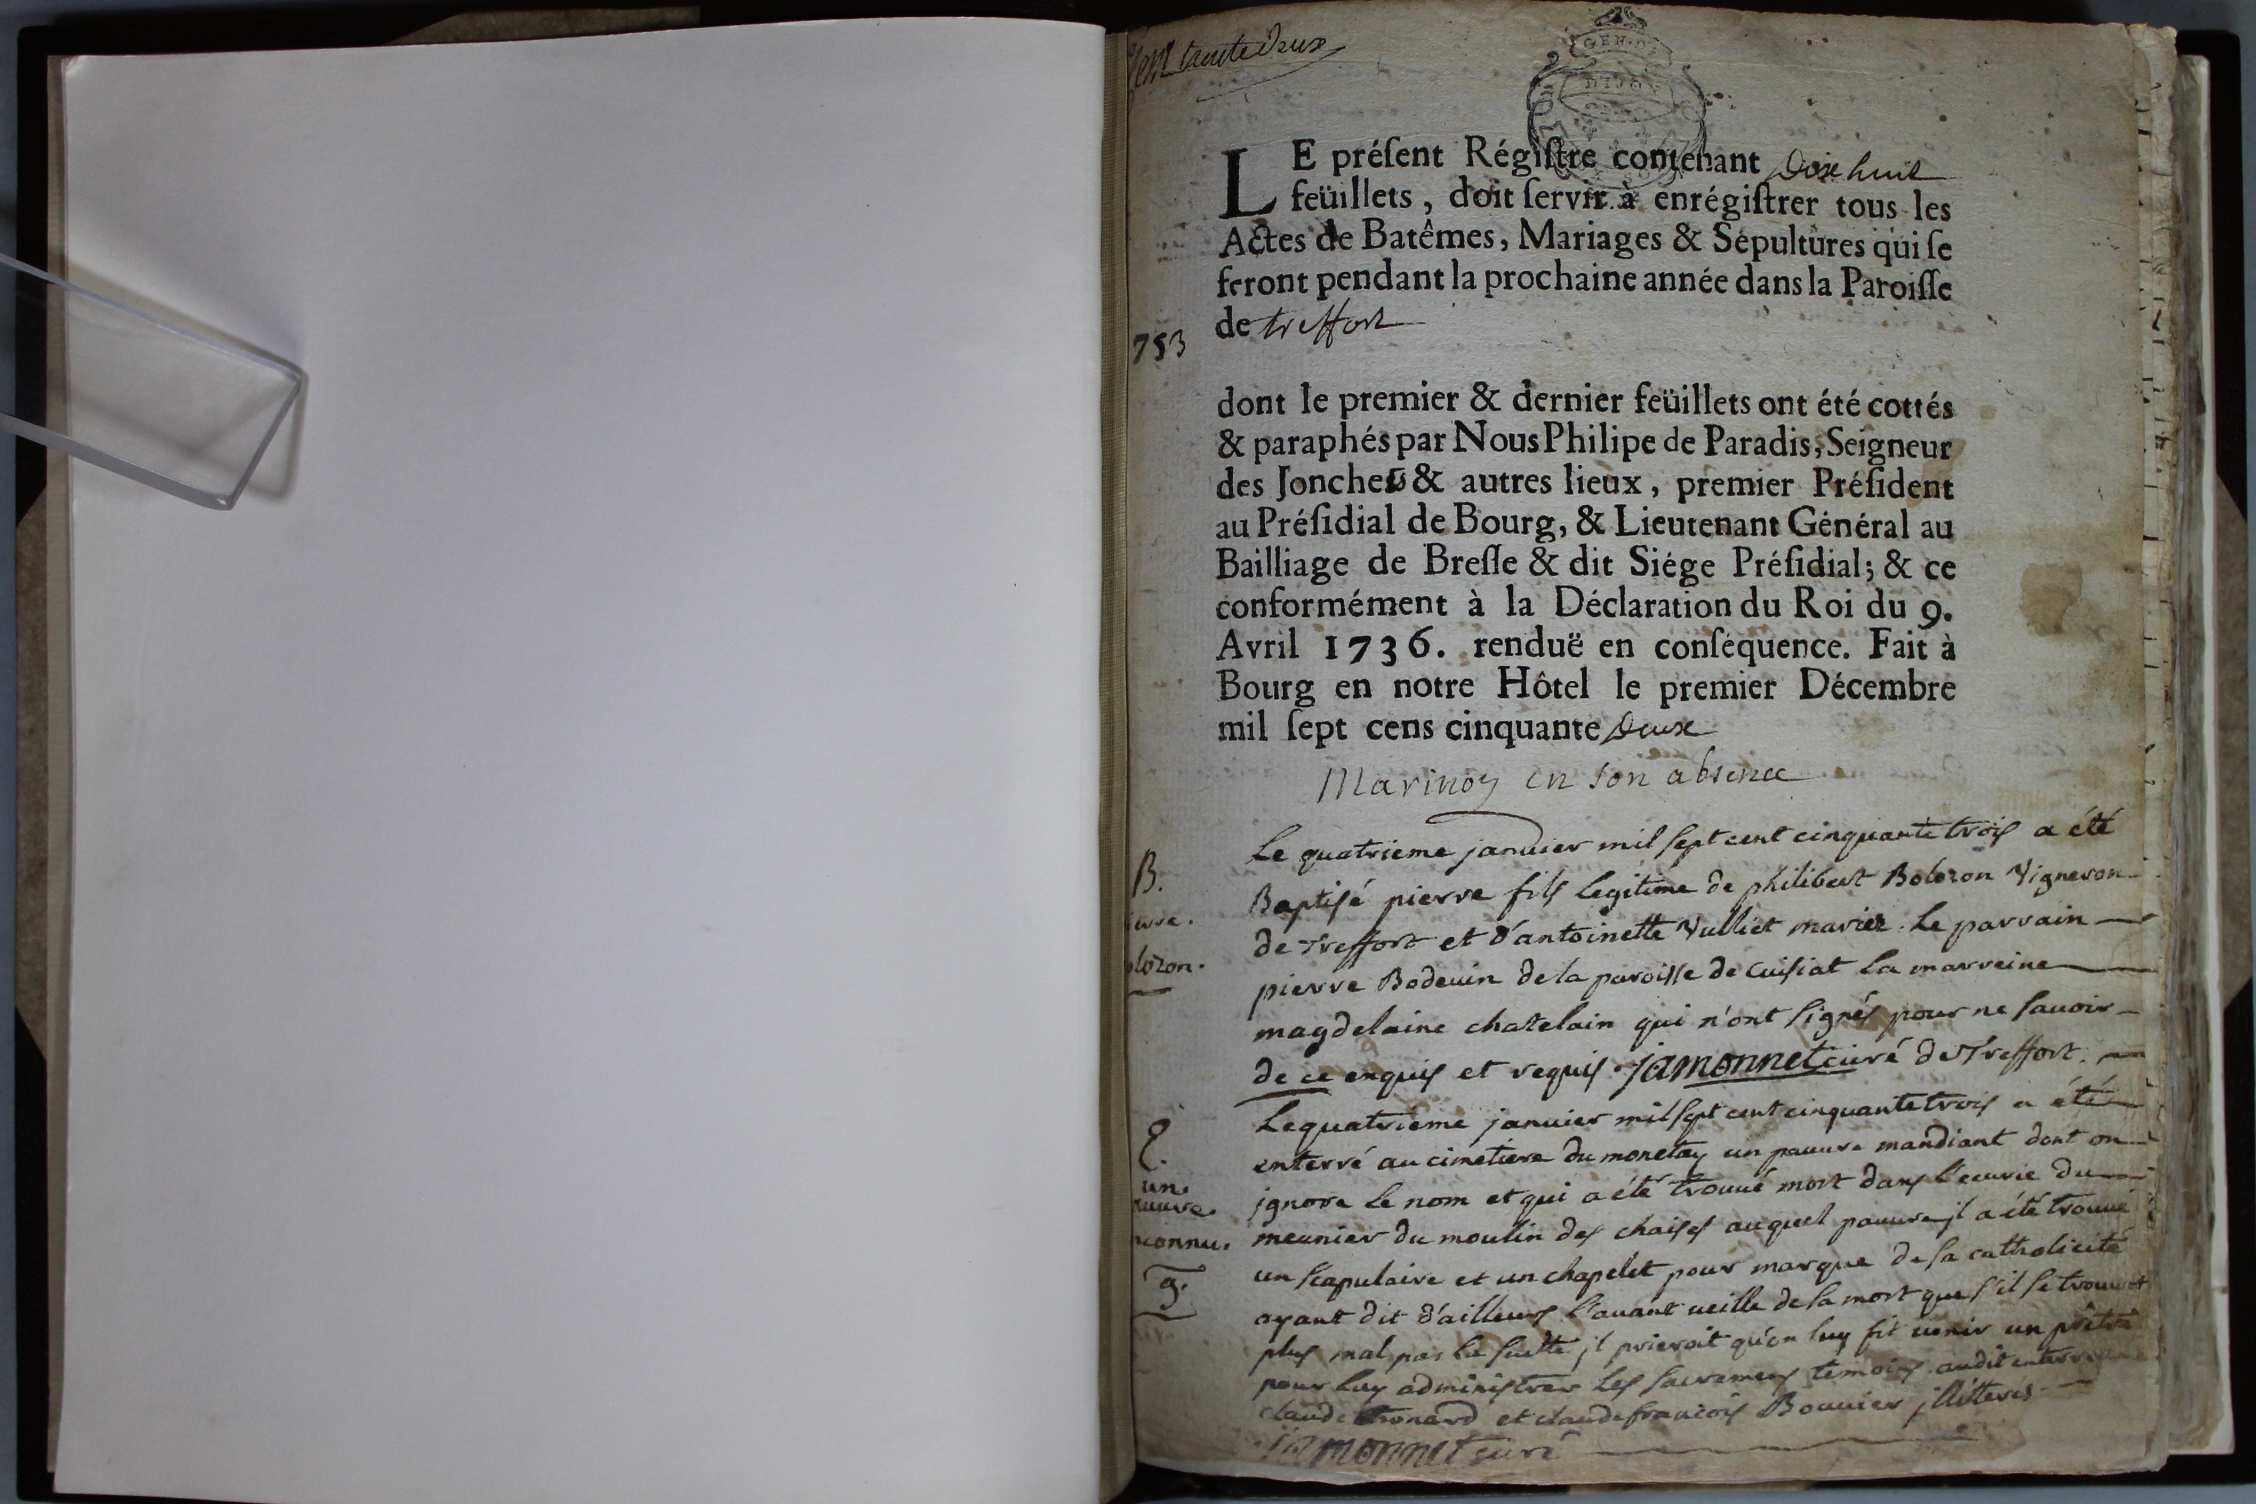 GEN. D
DIJON
LE préſent Régiſtre contenant Dixhuit
feüillets, doit ſervir à enrégiſtrer tous les
Actes de Batêmes, Mariages & Sépultures qui ſe
feront pendant la prochaine année dans la Paroiſſe
de treffort
753
dont le premier & dernier feüillets ont été cottés
& paraphés par Nous Philipe de Paradis, Seigneur
des Jonches & autres lieux, premier Préſident
au Préſidial de Bourg, & Lieutenant Général au
Bailliage de Breſſe & dit Siége Préſidial; & ce
conformément à la Déclaration du Roi du 9.
Avril 1736. renduë en conſéquence. Fait à
Bourg en notre Hôtel le premier Décembre
mil ſept cens cinquante Deux
en son absence
B.
Le quatrieme januier mil sept cent cinquante trois a été
Baptisé pierre fils legitime de philibert Bolozon Vigneron
de Treffort et d'antoinette Vulliet mariez. Le parrain
olozon.
pierre Bodeuin de la paroisse de Cuisiat la marreine
magdelaine chatelain qui n'ont signés pour ne sauoir
de ce enquis et requis. jamonnet curé de Treffort.
Le quatrieme januier mil sept cent cinquante trois a été
enterré au cimetiere du monetay un pauure mandiant dont on
un
ignore le nom et qui a été trouué mort dans l'ecurie du
auure.
meunier du moulin des chaises auquel pauure jl a été trouué
connu.
un scapulaire et un chapelet pour marque de sa catholicité
g.
ayant dit d'ailleurs l'auant ueille de sa mort que s'il se trouuoit
plus mal par la suitte jl prieroit qu'on luy fit uenir un prêtre
pour luy administrer les sacremens témoins audit
claude et claude françois Bouuier jlliterés
jamonnet curé